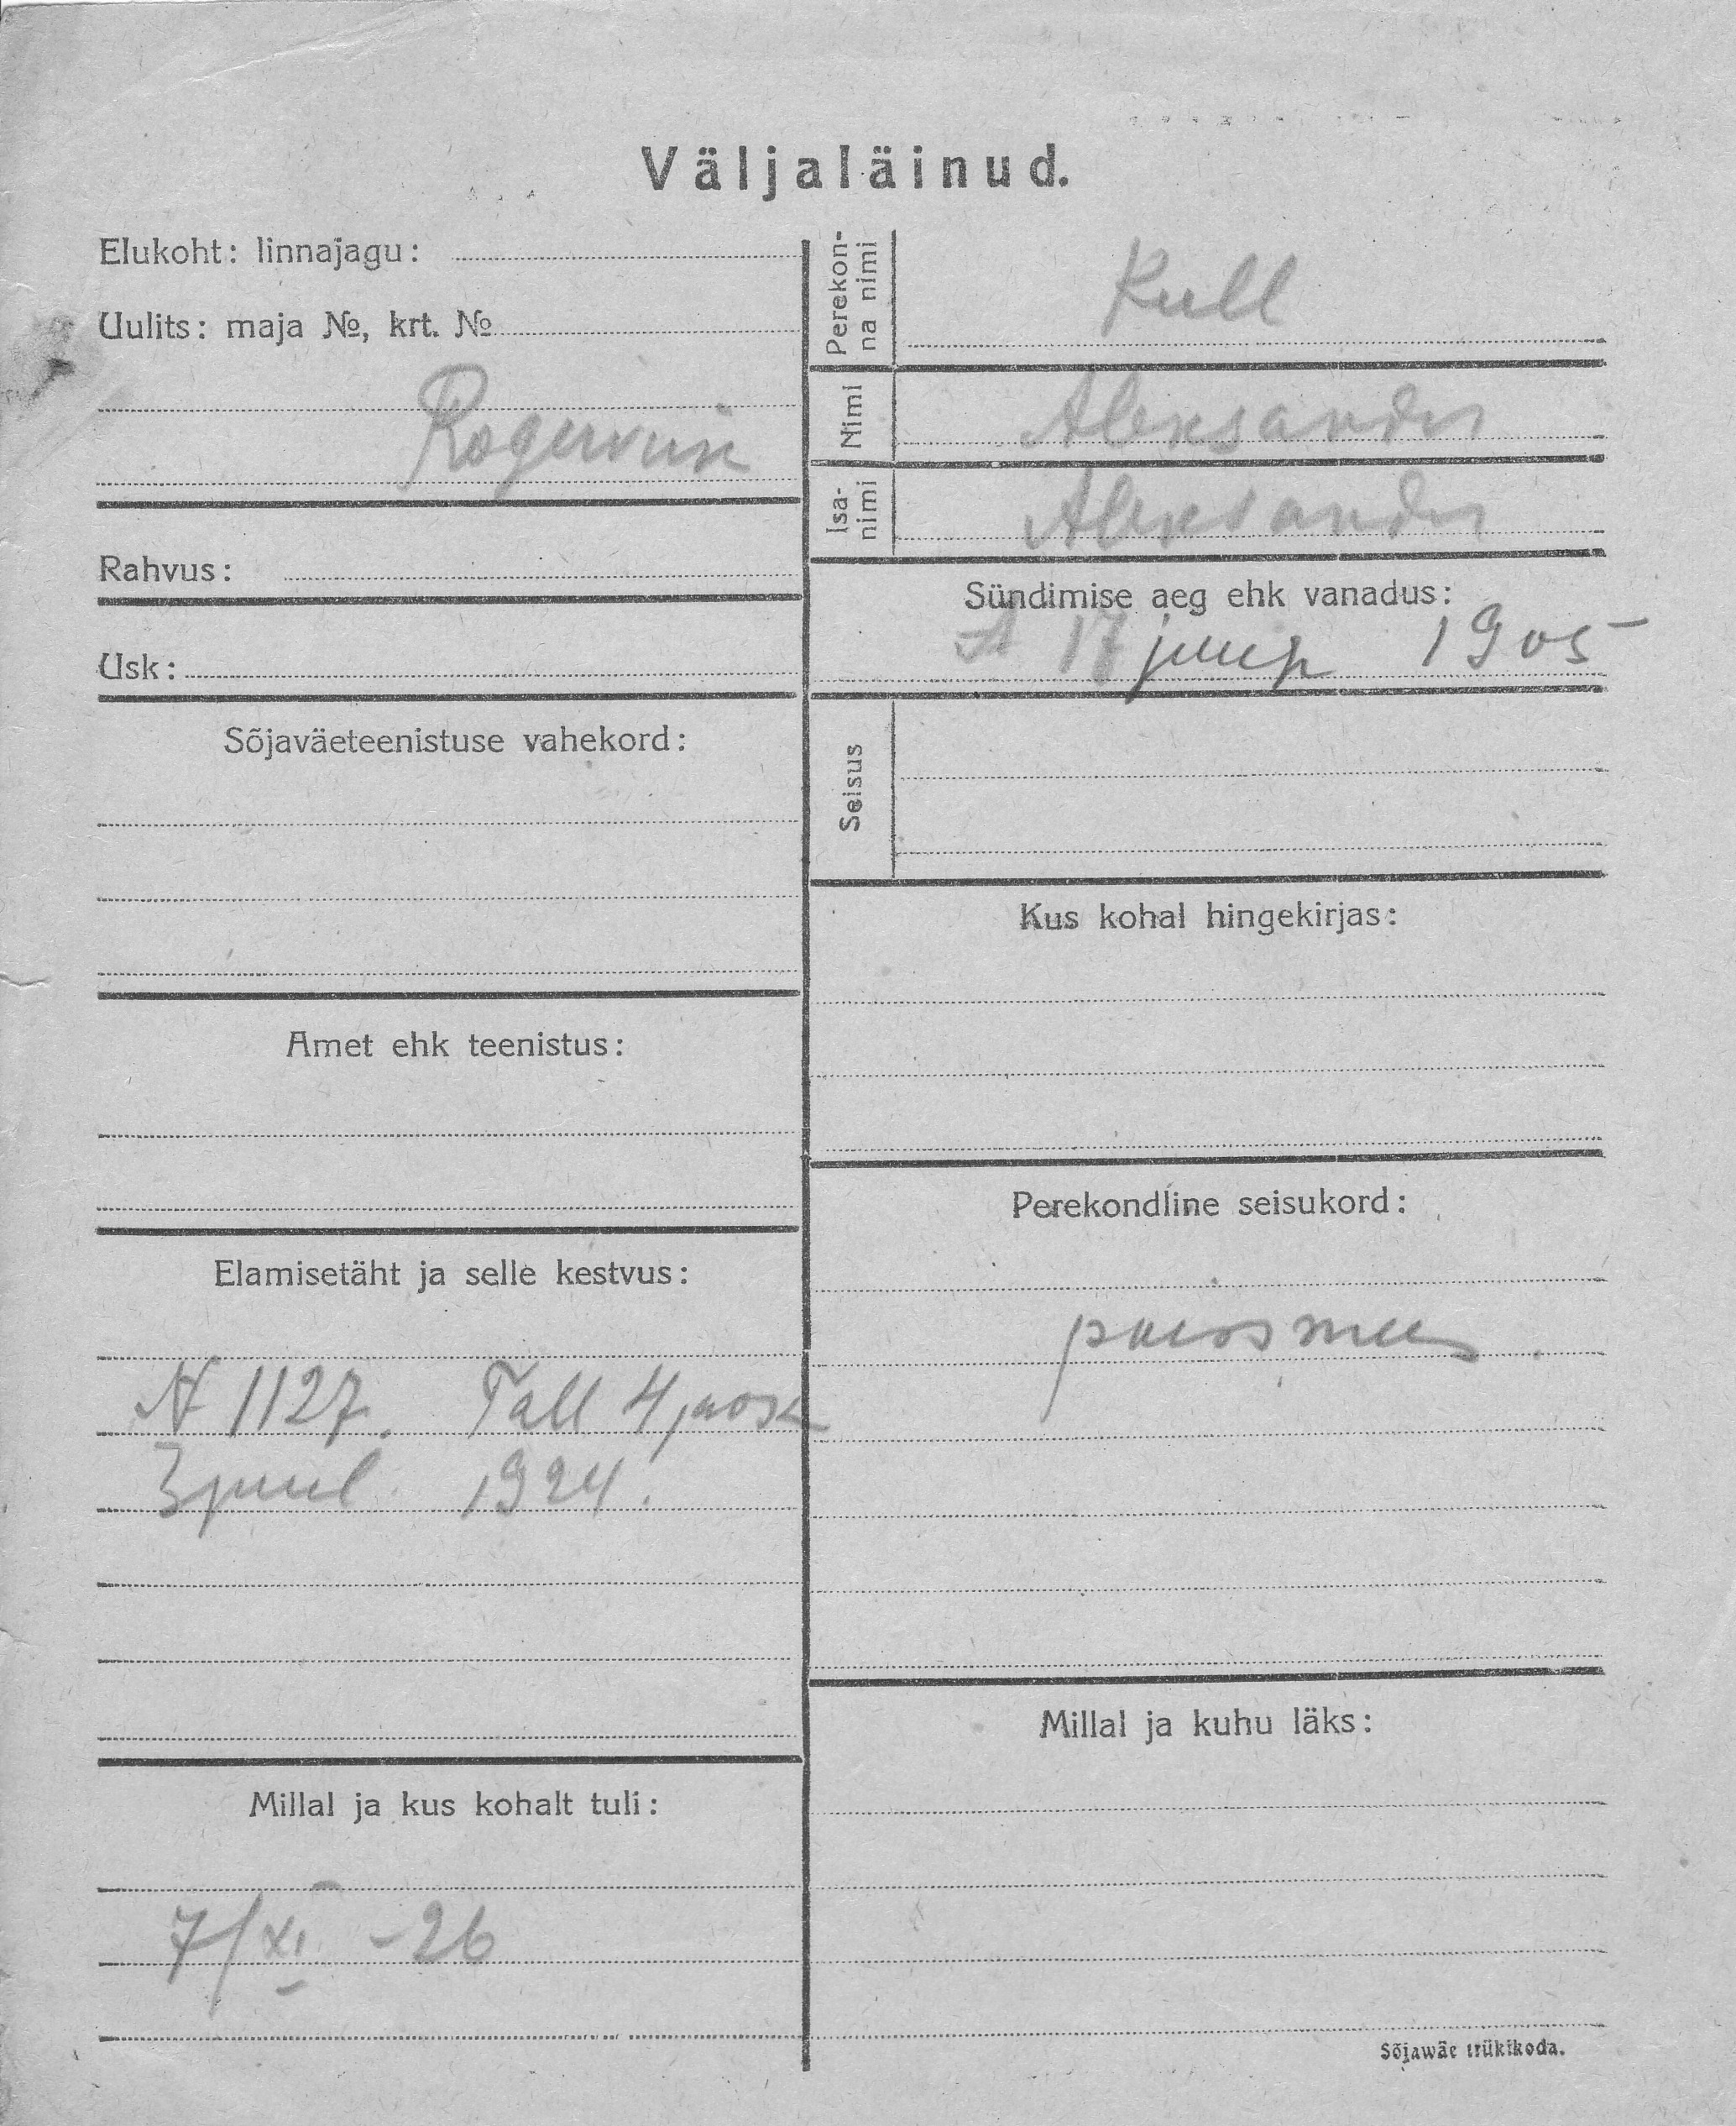 Väljaläinud.
Elukoht: linnajagu:
Uulits: maja №, krt. №
Rogerviik
Rahvus:
Usk:
Sõjaväeteenistuse vahekord:
Amet ehk teenistus:
Elamisetäht ja selle kestvus:
№ 1127. Tall 4 jaosk
1924.
Millal ja kus kohalt tuli:
7/XI -26
Perekon-
na nimi
Kull
Nimi
Aleksander
Isa-
nimi
Aleksander
Sündimise aeg ehk vanadus:
17 1905
Seisus
Kus kohal hingekirjas:
Perekondline seisukord:
poissmees.
Millal ja kuhu läks:
Sõjawäe trükikoda.